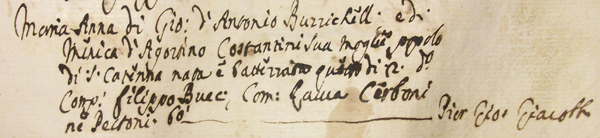 Maria Anna di Gio: d'Antonio Burrichell: e di
Minica d'Agostino Costantini sua moglie popolo
di S. Caterina nata e battezzata questo di 12. do
Comp: Filippo Bucc: Com: Laura Cerboni
ne Pectoni. 60:
Pier Gio: